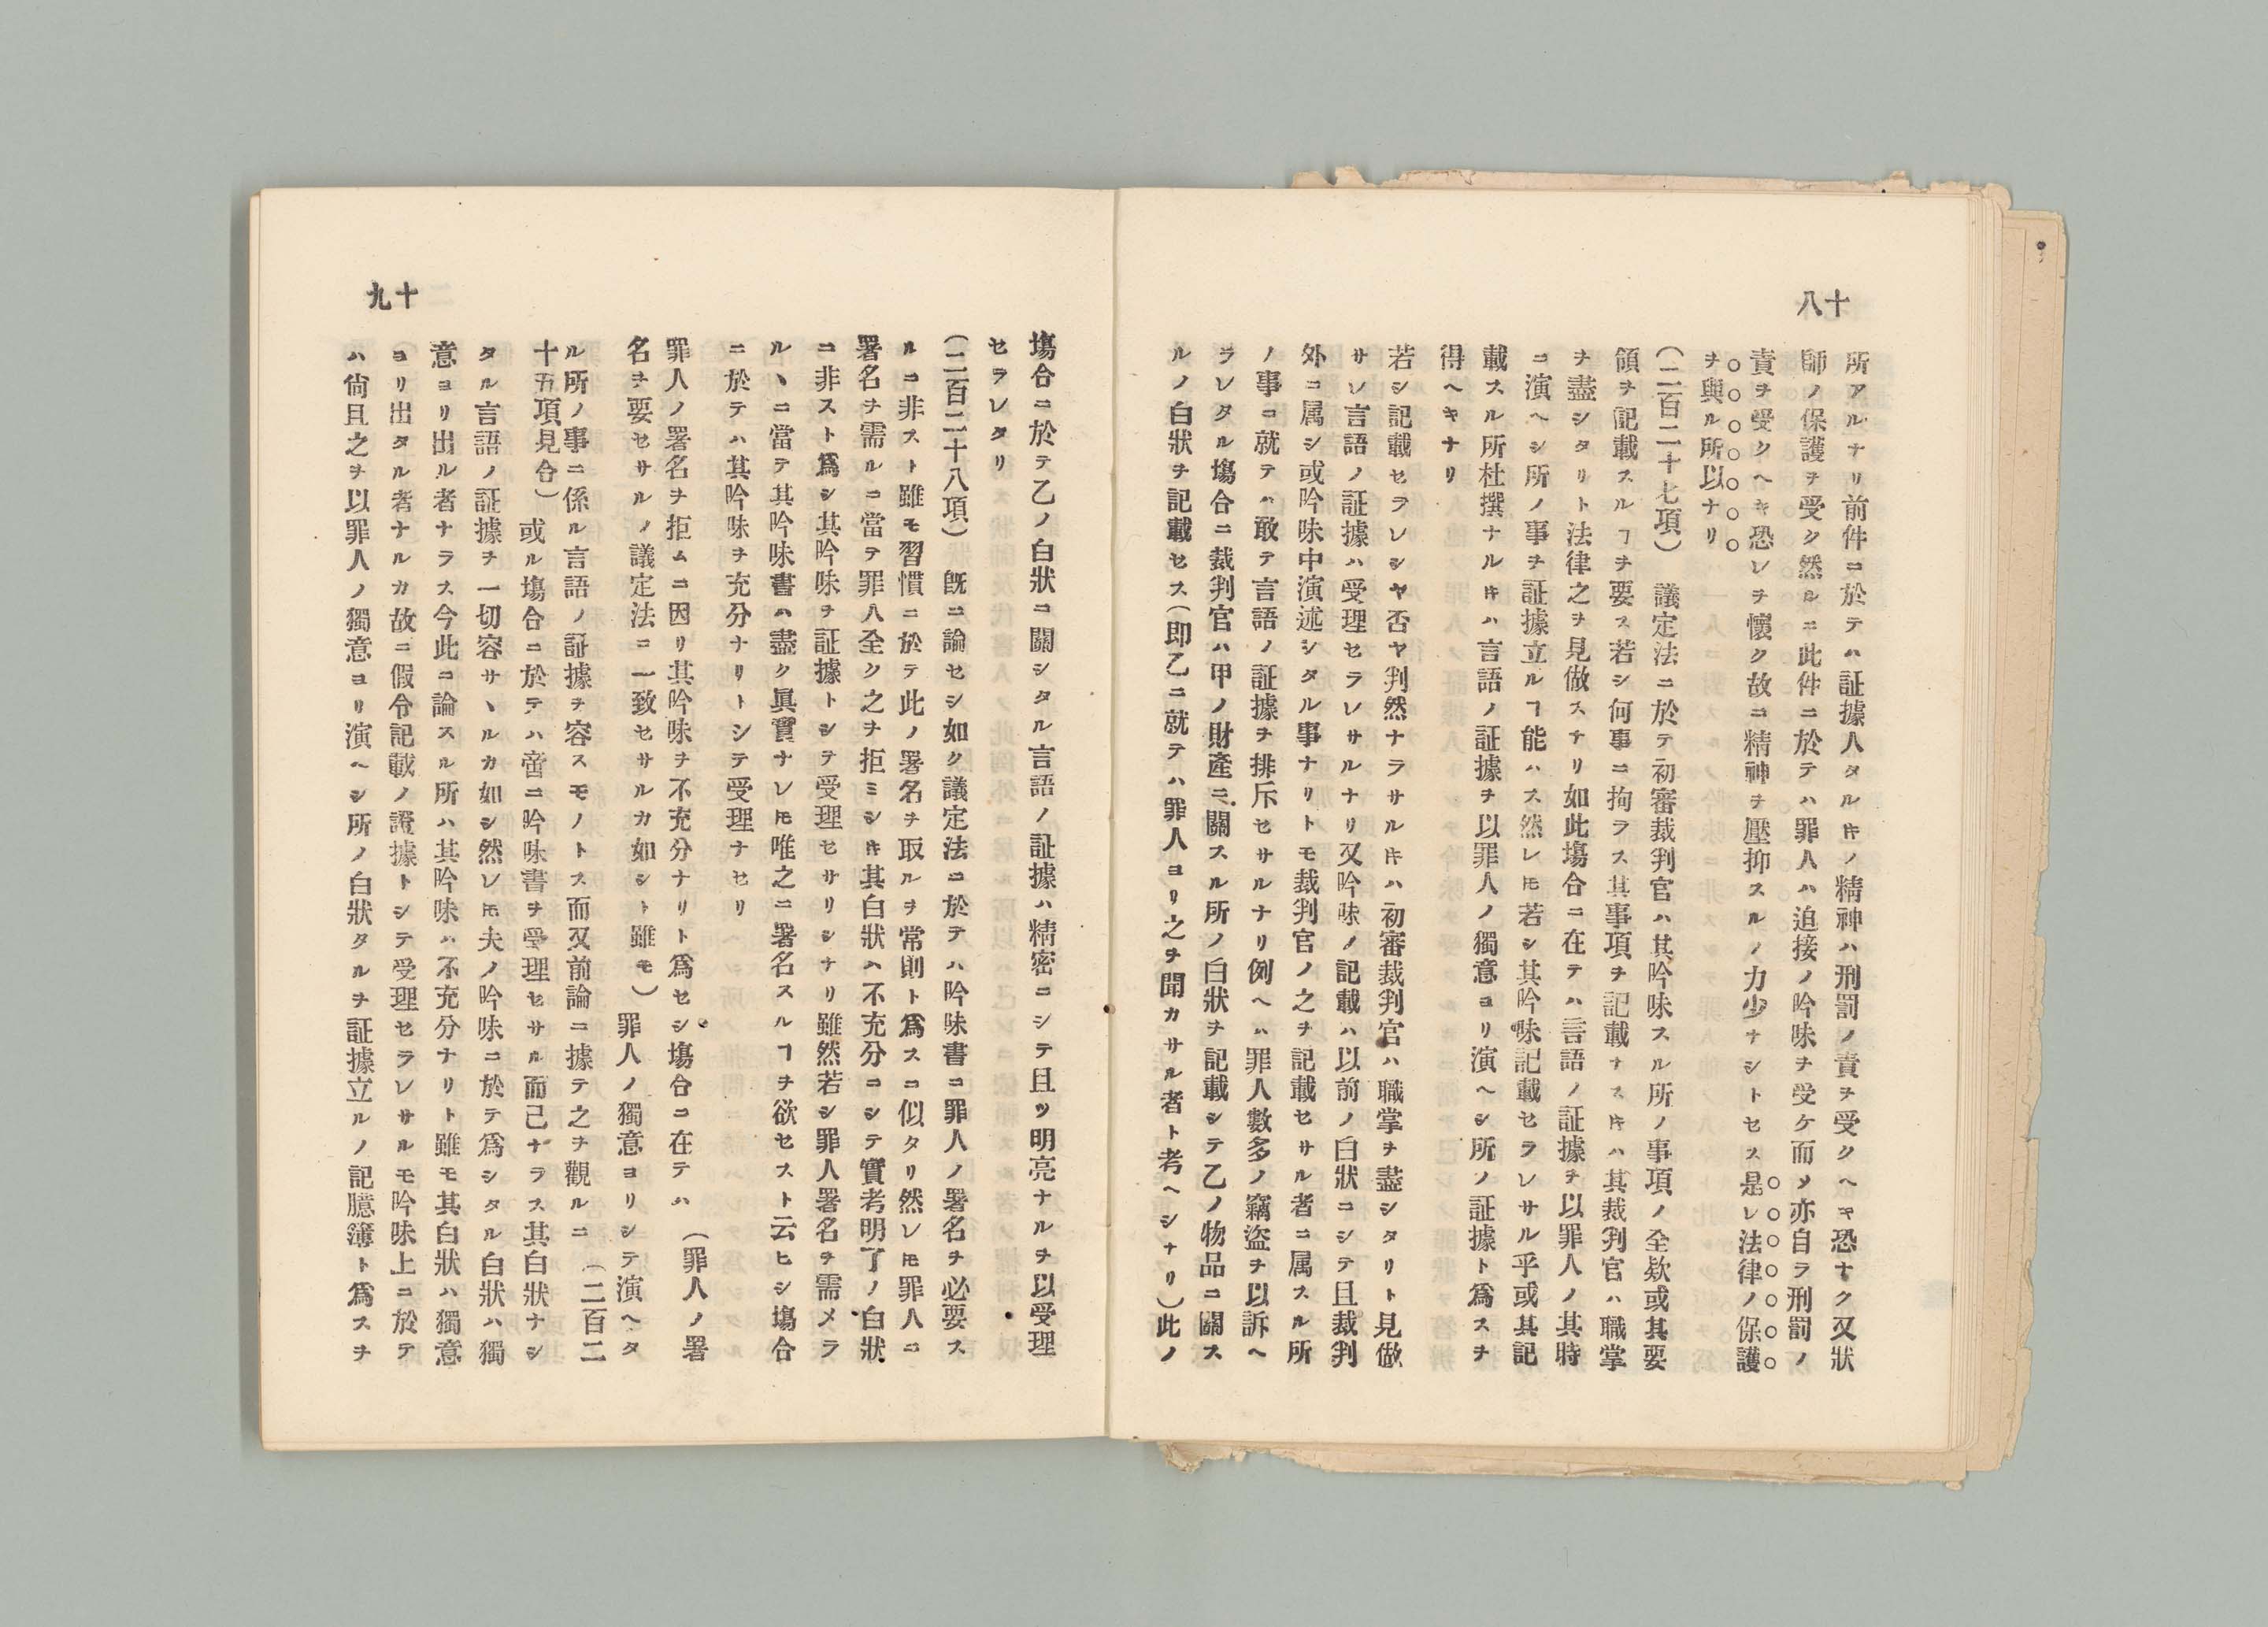 十八
所アルナリ前件ニ於テハ証據人タルキノ精神ハ刑罰ノ責ヲ受クヘキ恐ナク又狀
師ノ保護ヲ受ク然ルニ此件ニ於テハ罪人ハ迫接ノ吟味ヲ受ケ而メ亦自ラ刑罰ノ
責ヲ受クヘキ恐レヲ懷ク故ニ精神ヲ壓抑スルノ力少ナシトセス是レ法律ノ保護
ヲ與ル所以ナリ
(二百二十七項)議定法ニ於テ初審裁判官ハ其吟味スル所ノ事項ノ全欵或其要
領ヲ記載スルヿヲ要ス若シ何事ニ拘ラス其事項ヲ記載ナスキハ其裁判官ハ職掌
ヲ盡シタリト法律之ヲ見做スナリ如此塲合ニ在テハ言語ノ証據ヲ以罪人ノ其時
ニ演ヘシ所ノ事ヲ証據立ルヿ能ハス然レ𪜈若シ其吟味記載セラレサル乎或其記
載スル所杜撰ナルキハ言語ノ証據ヲ以罪人ノ獨意ヨリ演ヘシ所ノ証據ト爲スヲ
得ヘキナリ
若シ記載セラレシヤ否ヤ判然ナラサルキハ初審裁判官ハ職掌ヲ盡シタリト見做
サレ言語ノ証據ハ受理セラレサルナリ又吟味ノ記載ハ以前ノ白狀ニシテ且裁判
外ニ属シ或吟味中演述シタル事ナリトモ裁判官ノ之ヲ記載セサル者ニ属スル所
ノ事ニ就テハ敢テ言語ノ証據ヲ排斥セサルナリ例ヘハ罪人數多ノ竊盜ヲ以訴ヘ
ラレタル塲合ニ裁判官ハ甲ノ財產ニ關スル所ノ白狀ヲ記載シテ乙ノ物品ニ關ス
ルノ白狀ヲ記載セス(即乙ニ就テハ罪人ヨリ之ヲ聞カサル者ト考ヘシナリ)此ノ
塲合ニ於テ乙ノ白狀ニ關シタル言語ノ証據ハ精密ニシテ且ツ明亮ナルヲ以受理
セラレタリ
(二百二十八項)既ニ論セシ如ク議定法ニ於テハ吟味書ニ罪人ノ署名ヲ必要ス
ルニ非スト雖モ習慣ニ於テ此ノ署名ヲ取ルヲ常則ト爲スニ似タリ然レ𪜈罪人ニ
署名ヲ需ルニ當テ罪人全ク之ヲ拒ミシキ其白狀ハ不充分ニシテ實考明了ノ白狀
ニ非スト爲シ其吟味ヲ証據トシテ受理セサリシナリ雖然若シ罪人署名ヲ需メラ
ルヽニ當テ其吟味書ハ盡ク眞實ナレ𪜈唯之ニ署名スルヿヲ欲セスト云ヒシ塲合
ニ於テハ其吟味ヲ充分ナリトシテ受理ナセリ
罪人ノ署名ヲ拒ムニ因リ其吟味ヲ不充分ナリト爲セシ塲合ニ在テハ(罪人ノ署
名ヲ要セサルノ議定法ニ一致セサルカ如シト雖モ)罪人ノ獨意ヨリシテ演ヘタ
ル所ノ事ニ係ル言語ノ証據ヲ容スモノトス而又前論ニ據テ之ヲ觀ルニ(二百二
十五項見合)或ル塲合ニ於テハ啻ニ吟味書ヲ受理セサル而已ナラス其白狀ナシ
タル言語ノ証據ヲ一切容サヽルカ如シ然レ𪜈夫ノ吟味ニ於テ爲シタル白狀ハ獨
意ヨリ出ル者ナラス今此ニ論スル所ハ其吟味ハ不充分ナリト雖モ其白狀ハ獨意
ヨリ出タル者ナルカ故ニ假令記載ノ證據トシテ受理セラレサルモ吟味上ニ於テ
ハ尙且之ヲ以罪人ノ獨意ヨリ演ヘシ所ノ白狀タルヲ証據立ルノ記臆簿ト爲スヲ
十九